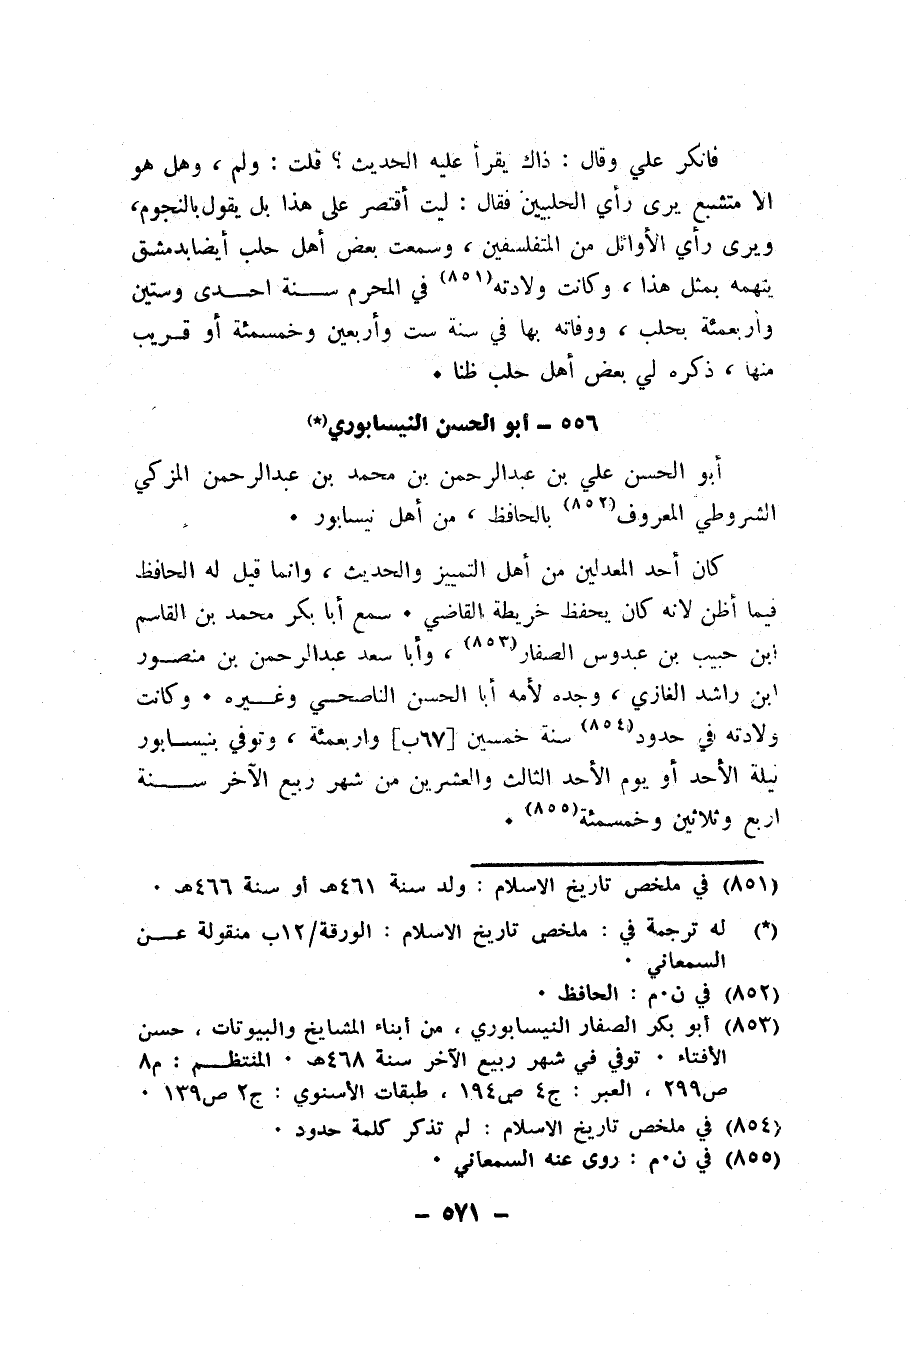 فانكر علي وقال : ذاك يقرأ عليه الحديث ؟ قلت : ولم ، وهل هو
الا متشيع يرى رأي الحلبيين فقال : ليت أقتصر على هذا بل يقول بالنجوم،
ويرى رأي الأوائل من المتفلسفين ، وسمعت بعض أهل حلب أيضا بدمشق
يتهمه بمثل هذا ، وكانت ولادته(٨٥١) في المحرم سنة احدى وستين
وأربعمئة بحلب ، ووفاته بها في سنة ست وأربعين وخمسمئة أو قريب
منها ، ذكره لي بعض أهل حلب ظنا ٠
٥٥٦ – أبو الحسن النيسابوري(*)
أبو الحسن علي بن عبدالرحمن بن محمد بن عبدالرحمن المزكي
الشروطي المعروف(٨٥٢) بالحافظ ، من أهل نيسابور ٠
كان أحد المعدلين من أهل التمييز والحديث ، وانما قيل له الحافظ
فيما أظن لانه كان يحفظ خريطة القاضي ٠ سمع أبا بكر محمد بن القاسم
ابن حبيب بن عبدوس الصفار(٨٥٣) ، وأبا سعد عبدالرحمن بن منصور
ابن راشد الغازي ، وجده لأمه أبا الحسن الناصحي وغيره ٠ وكانت
ولادته في حدود(٨٥٤) سنة خمسين [٦٧ب] واربعمئة ، وتوفي بنيسابور
ليلة الأحد أو يوم الأحد الثالث والعشرين من شهر ربيع الآخر سنة
اربع وثلاثين وخمسمئة(٨٥٥) ٠
(٨٥١) في ملخص تاريخ الاسلام : ولد سنة ٤٦١هـ أو سنة ٤٦٦هـ ٠
(*) له ترجمة في : ملخص تاريخ الاسلام : الورقة/١٢ب منقولة عن
السمعاني ٠
(٨٥٢) في ن٠م : الحافظ ٠
(٨٥٣) أبو بكر الصفار النيسابوري ، من أبناء المشايخ والبيوتات ، حسن
الأفتاء ٠ توفي في شهر ربيع الآخر سنة ٤٦٨هـ ٠ المنتظم : م٨
ص٢٩٩ ، العبر : ج٤ ص١٩٤ ، طبقات الأسنوي : ج٢ ص١٣٩ ٠
(٨٥٤) في ملخص تاريخ الاسلام : لم تذكر كلمة حدود ٠
(٨٥٥) في ن٠م : روى عنه السمعاني ٠
– ٥٧١ –